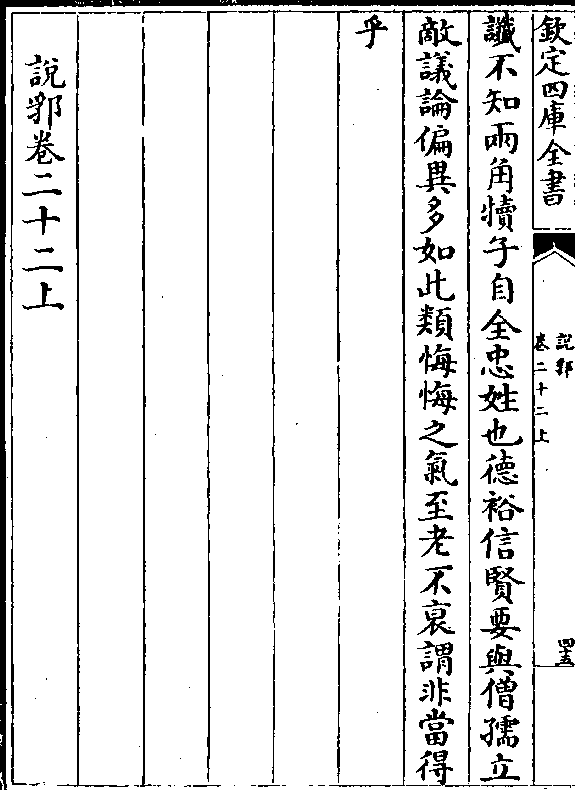 欽定四庫全書
說郛
卷二十二上
四十五
讖不知兩角犢子自全忠姓也德裕信賢要與僧孺立
敵議論偏異多如此類悔悔之氣至老不衰謂非當得
乎
說郛卷二十二上